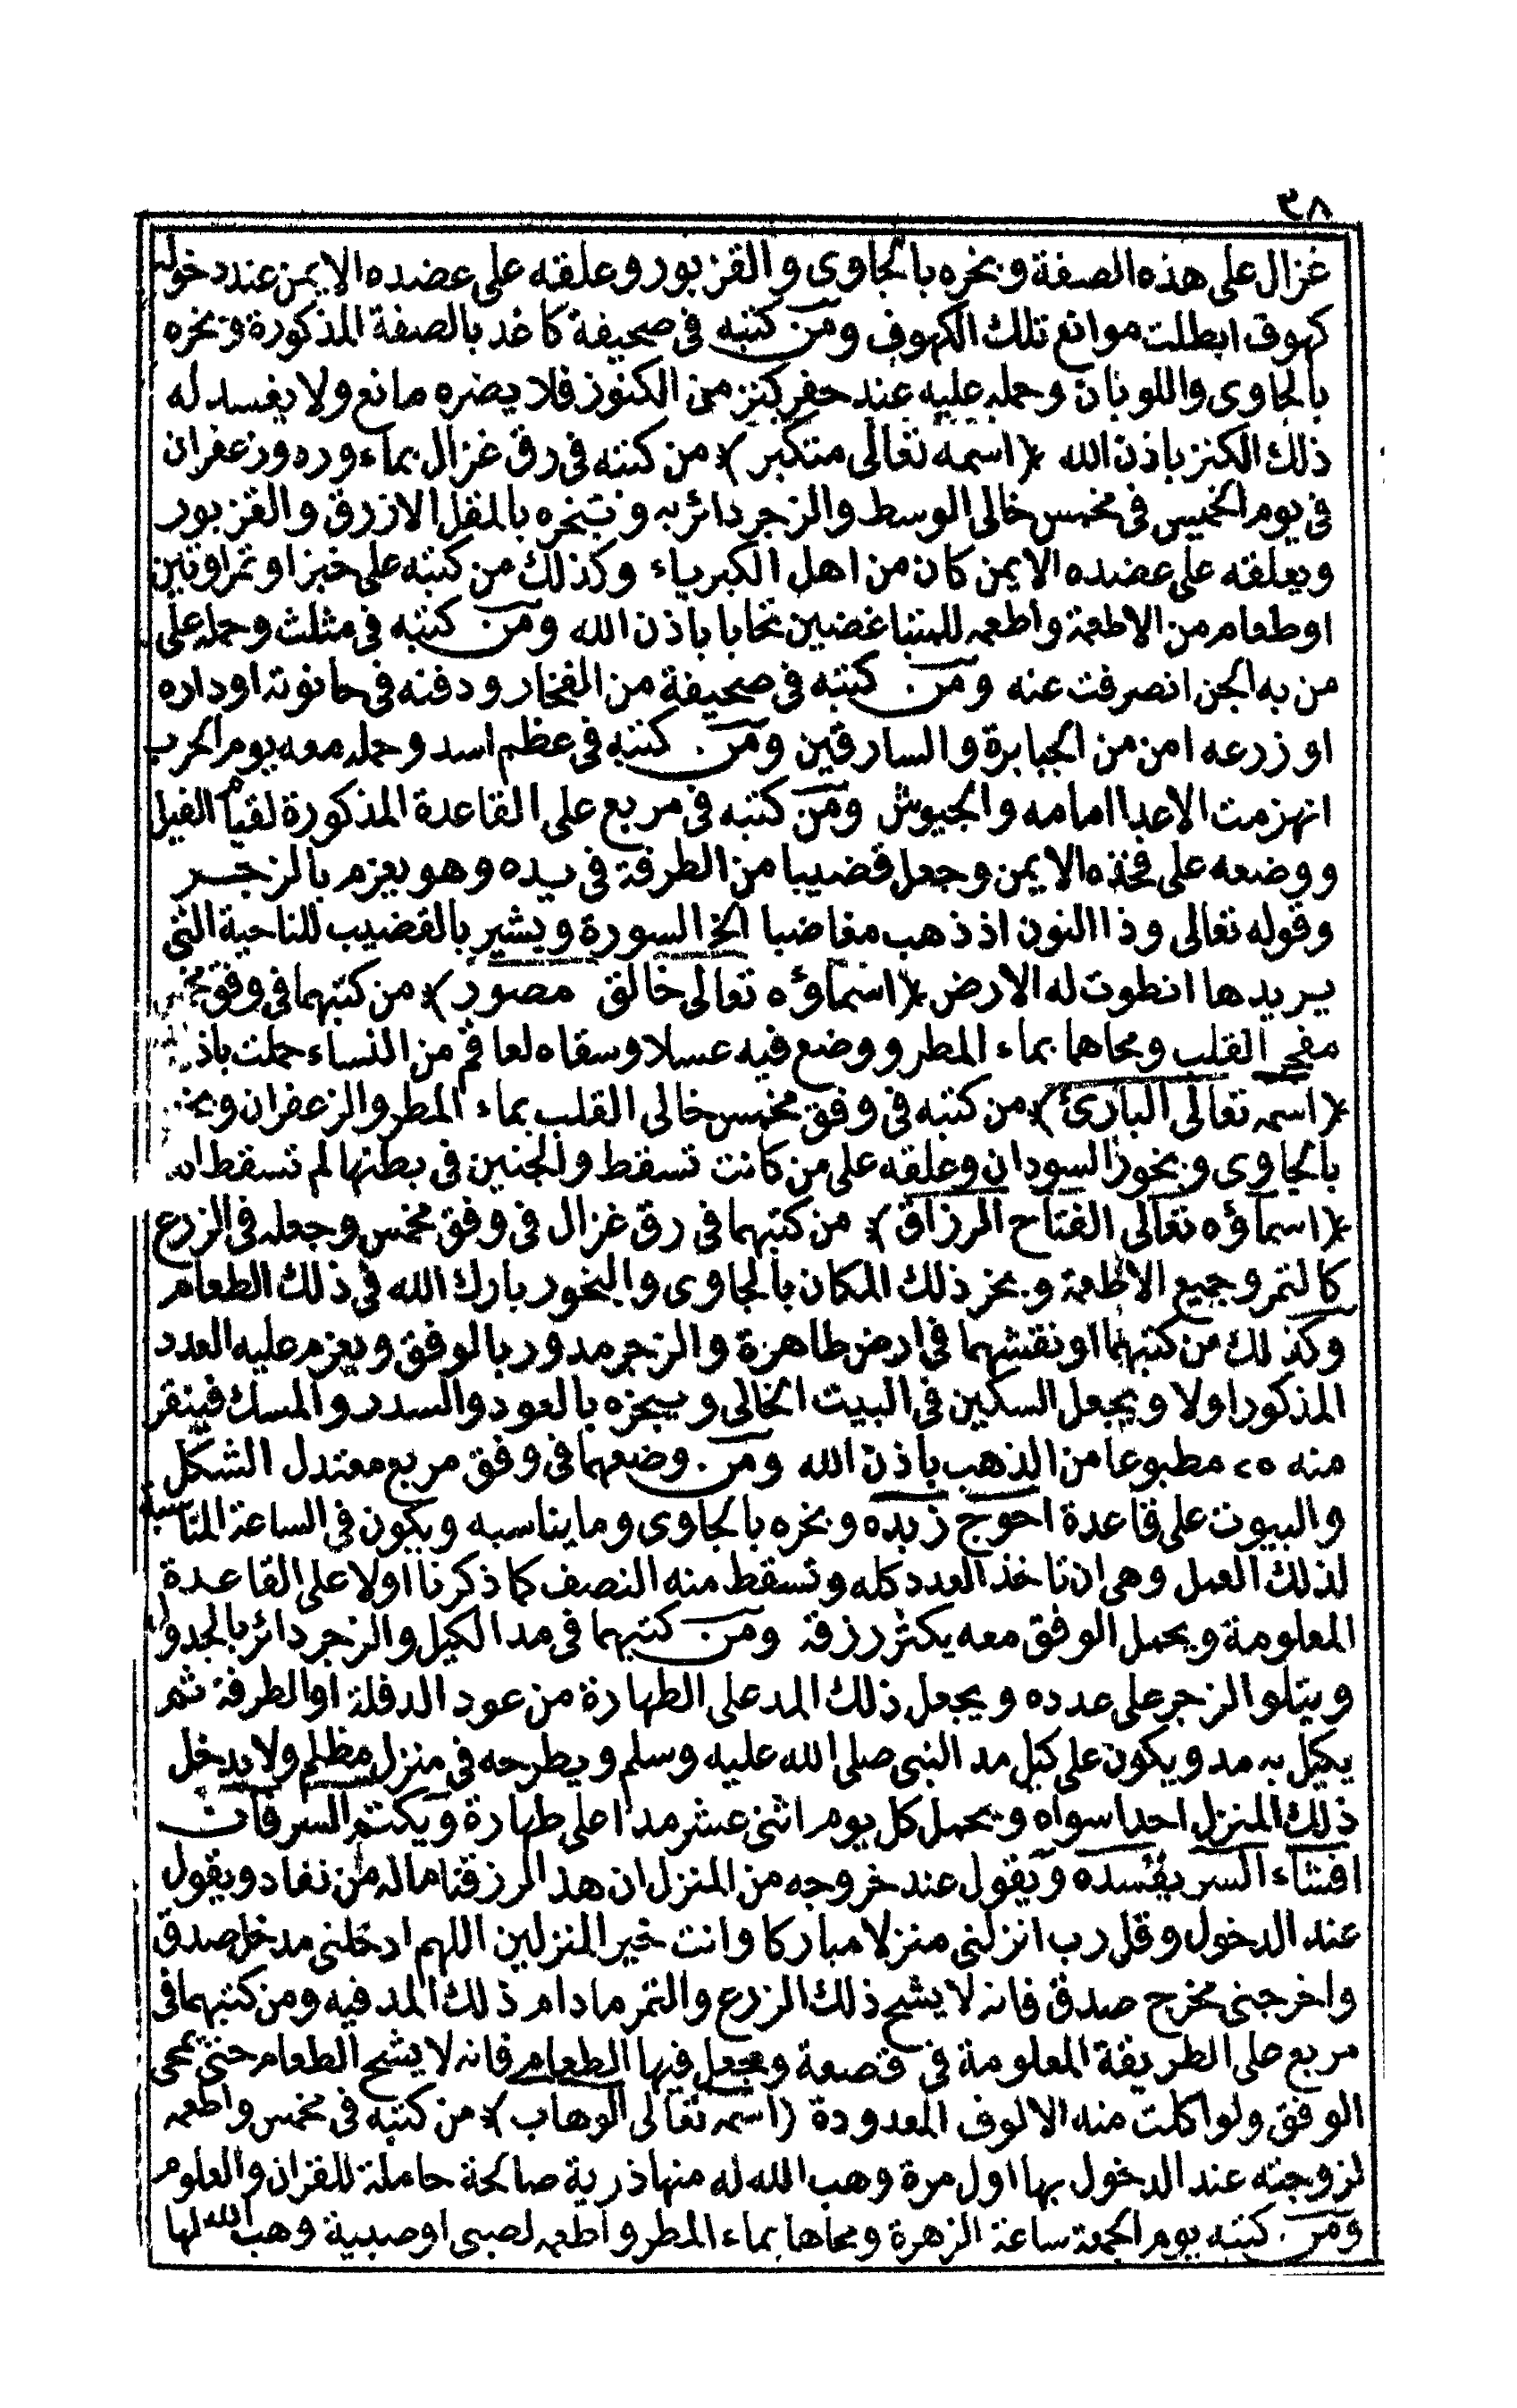 ٣٨
غزال على هذه الصفة وبخره بالجاوى والقزبور وعلقه على عضده الايمن عند دخوله
كهوف ابطلت موانع تلك الكهوف ومن كتبه فى صحيفة كاغد بالصفة المذكورة وبخره
بالجاوى واللوبان وحمله عليه عند حفر كنز من الكنوز فلا يضره مانع ولا يفسد له
ذلك الكنز باذن الله ﴿اسمه تعالى متكبر﴾ من كتبه فى رق غزال بماء ورد وزعفران
فى يوم الخميس فى مخمس خالى الوسط والزجر دائر به وتبخره بالمقل الازرق والقزبور
ويعلقه على عضده الايمن كان من اهل الكبرياء وكذلك من كتبه على خبز او تمر اوتين
اوطعام من الاطعمة واطعمه للمتباغضين تحابا باذن الله ومن كتبه فى مثلث وحمله على
من به الجن انصرفت عنه ومن كتبه فى صحيفة من الفخار ودفنه فى حانوته اوداره
او زرعه امن من الجبابرة والسارقين ومن كتبه فى عظم اسد وحمله معه يوم الحرب
انهزمت الاعدا امامه والجيوش ومن كتبه فى مربع على القاعدة المذكورة لقيام الفيل
ووضعه على فخذه الايمن وجعل قضيبا من الطرفة فى يده وهو يعزم بالزجر
وقوله تعالى وذا النون اذ ذهب مغاضبا الخ السورة ويشير بالقضيب للناحية التى
يريدها انطوت له الارض ﴿اسماؤه تعالى خالق مصور﴾ من كتبهما فى وفق
القلب ومحاهما بماء المطر ووضع فيه عسلا وسقاه لعاقم من النساء حملت
﴿اسمه تعالى البارئ﴾ من كتبه فى وفق مخمس خالى القلب بماء المطر والزعفران
بالجاوى وبخور السودان وعلقه على من كانت تسقط والجنين فى بطنها لم تسقط
﴿اسماؤه تعالى الفتاح الرزاق﴾ من كتبهما فى رق غزال فى وفق مخمس وجعله فى الزرع
كالتمر وجميع الاطعمة وبخر ذلك المكان بالجاوى والبخور بارك الله فى ذلك الطعام
وكذلك من كتبهما او نقشهما فى ارض طاهرة والزجر مدور بالوفق ويعزم عليه العدد
المذكور اولا ويجعل السكين فى البيت الخالى ويبخره بالعود والسدر والمسك فينقر
منه ٢٥ مطبوعا من الذهب باذن الله ومن وضعهما فى وفق مربع معتدل الشكل
والبيوت على قاعدة احوج زبده وبخره بالجاوى وما يناسبه ويكون فى الساعة المناسبة
لذلك العمل وهى ان تاخذ العدد كله وتسقط منه النصف كما ذكرنا اولا على القاعدة
المعلومة ويحمل الوفق معه يكثر رزقه ومن كتبهما فى مد الكيل والزجر دائر بالجدول
ويتلو الزجر على عدده ويجعل ذلك المد على الطهارة من عود الدفلة اوالطرفة ثم
يكيل به مد ويكون على كيل مد النبى صلى الله عليه وسلم ويطرحه فى منزل مظلم ولا يدخل
ذلك المنزل احدا سواه ويحمل كل يوم اثنى عشر مدا على طهارة ويكتم السر فان
افشاء السر يفسده ويقول عند خروجه من المنزل ان هذا لرزقنا ماله من نفاد ويقول
عند الدخول وقل رب انزلنى منزلا مباركا وانت خير المنزلين اللهم ادخلنى مدخل صدق
واخرجنى مخرج صدق فانه لا يشح ذلك الزرع والتمر مادام ذلك المد فيه ومن كتبهما فى
مربع على الطريقة المعلومة فى قصعة وجعل فيها الطعام فانه لا يشح الطعام حتى يمحى
الوفق ولو اكلت منه الالوف المعدودة ﴿اسمه تعالى الوهاب﴾ من كتبه فى مخمس واطعمه
لزوجته عند الدخول بها اول مرة وهب الله له منها ذرية صالحة حاملة للقران والعلوم
ومن كتبه يوم الجمعة ساعة الزهرة ومحاها بماء المطر واطعمه لصبى اوصبية وهب الله لها